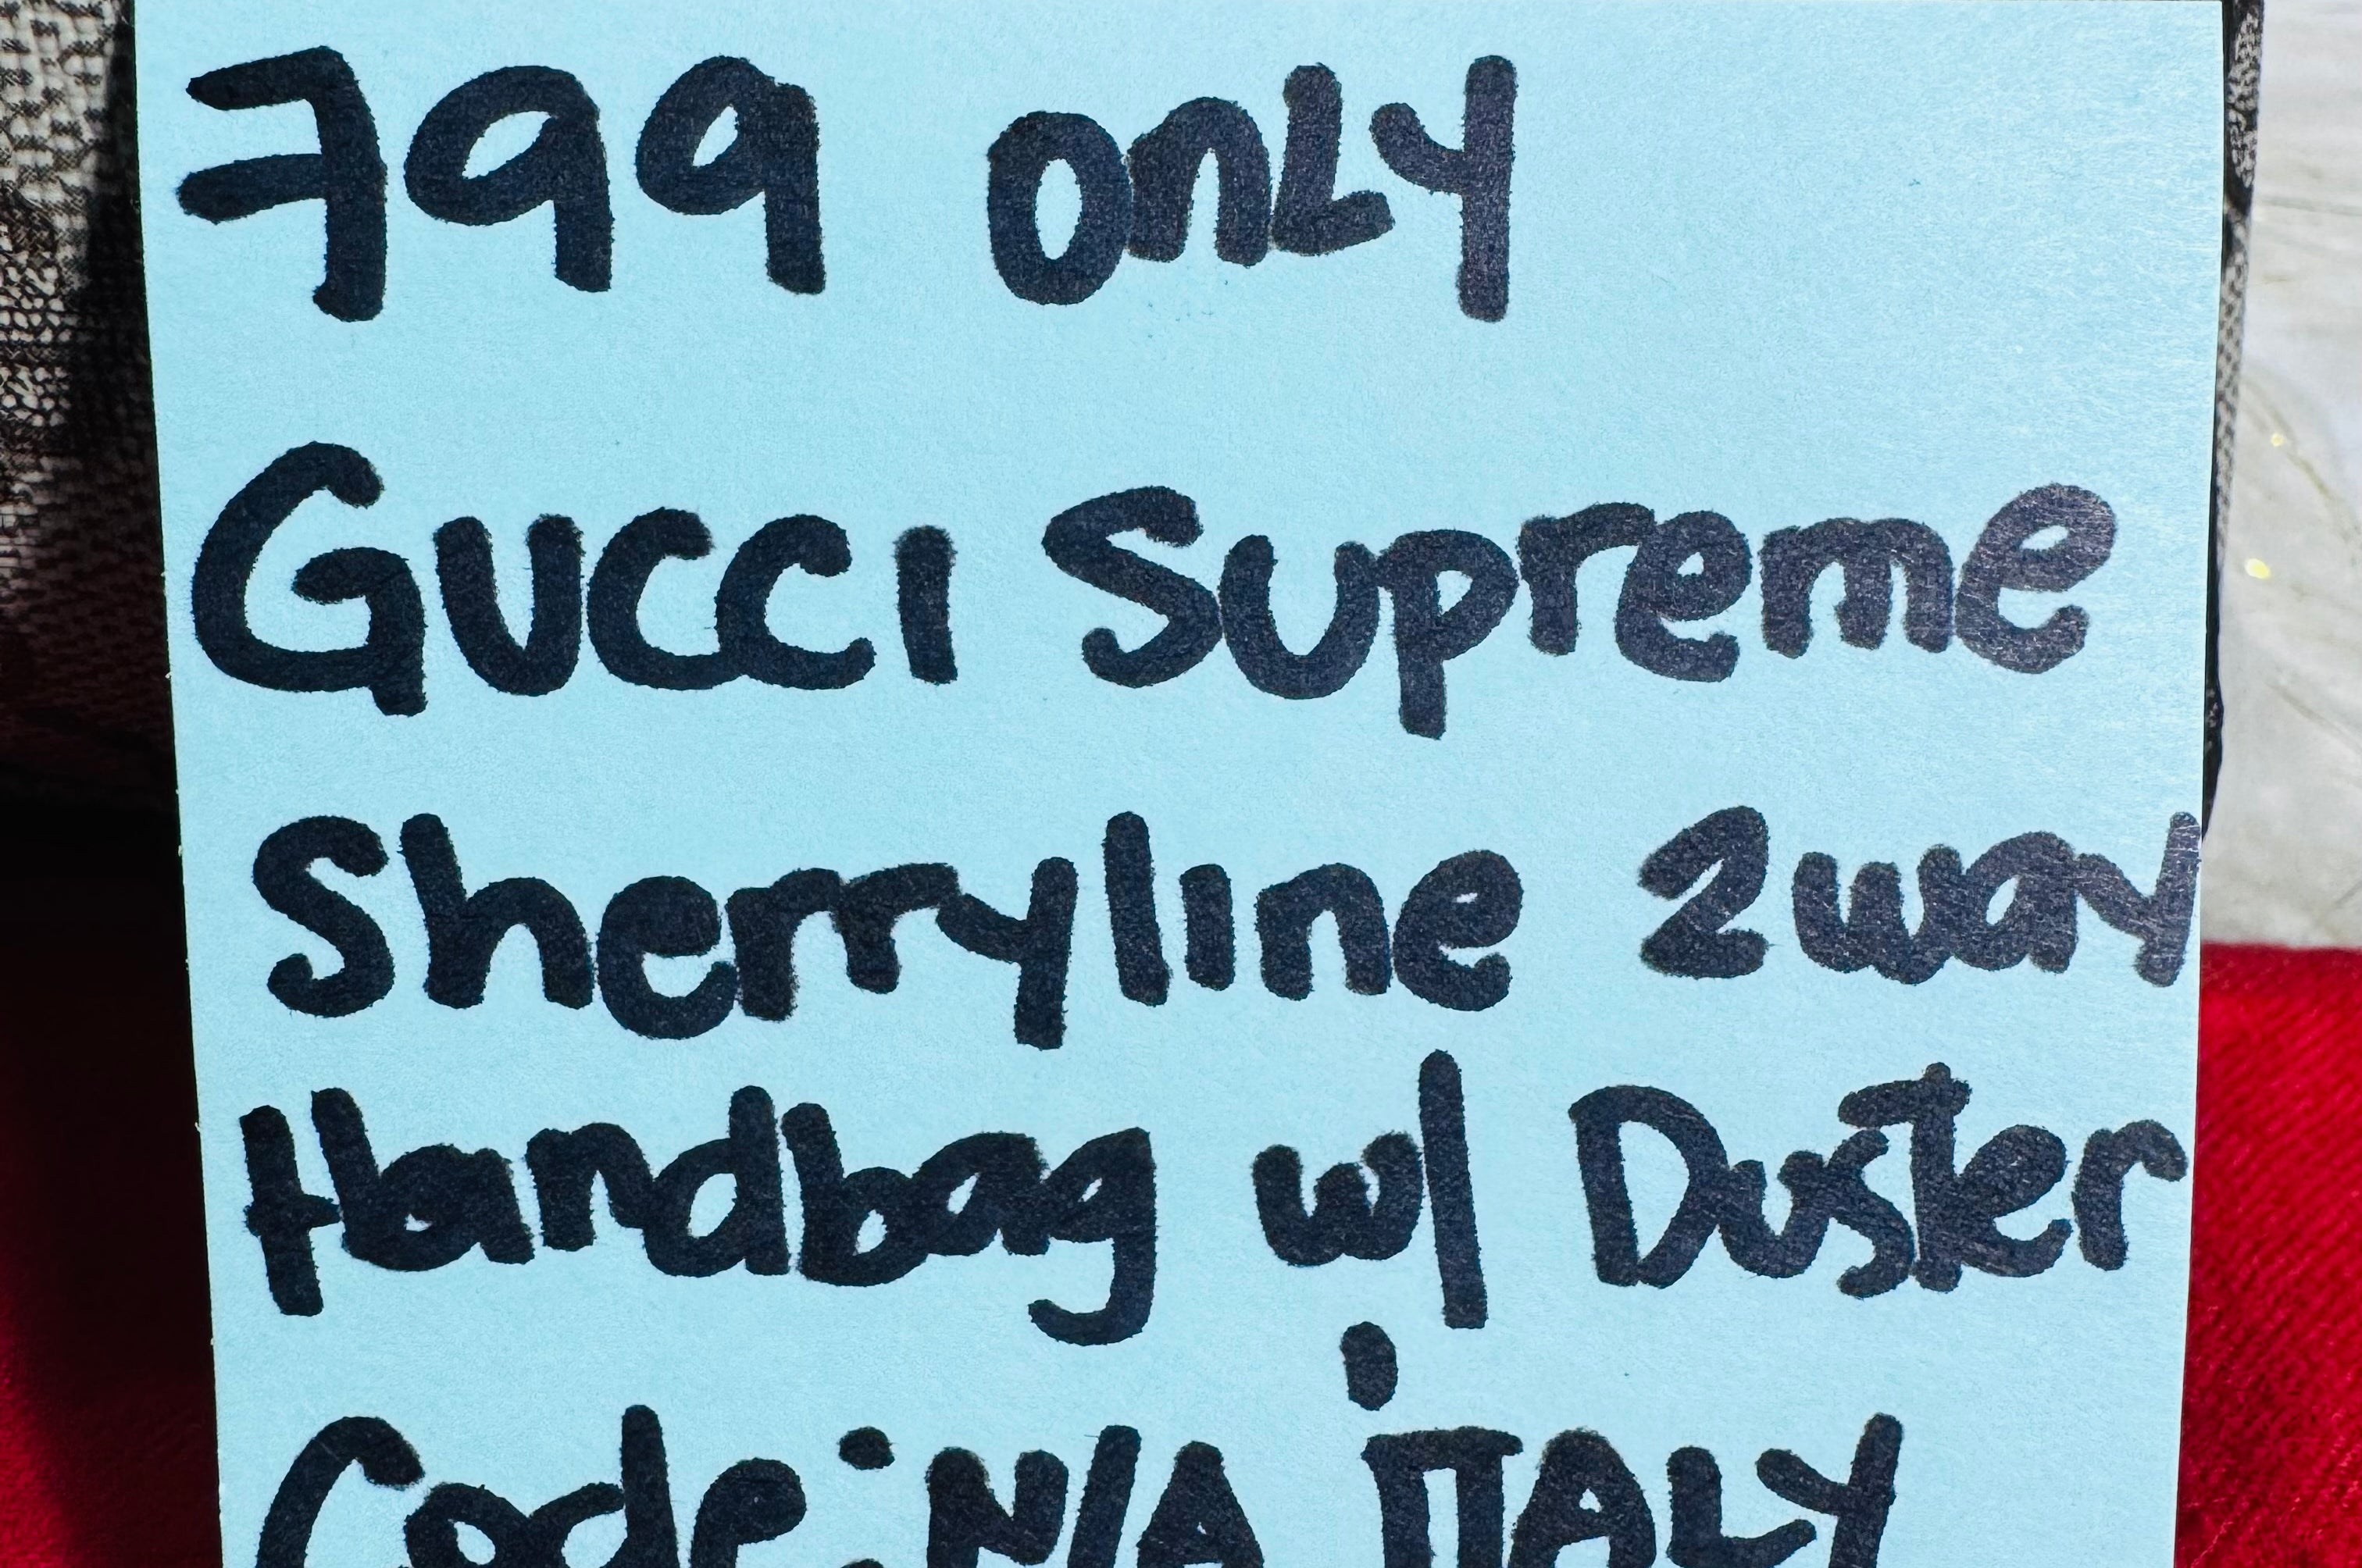 799 only
Gucci Supreme
Sherryline 2way
Handbag w/ Duster
Code: N/A ITALY